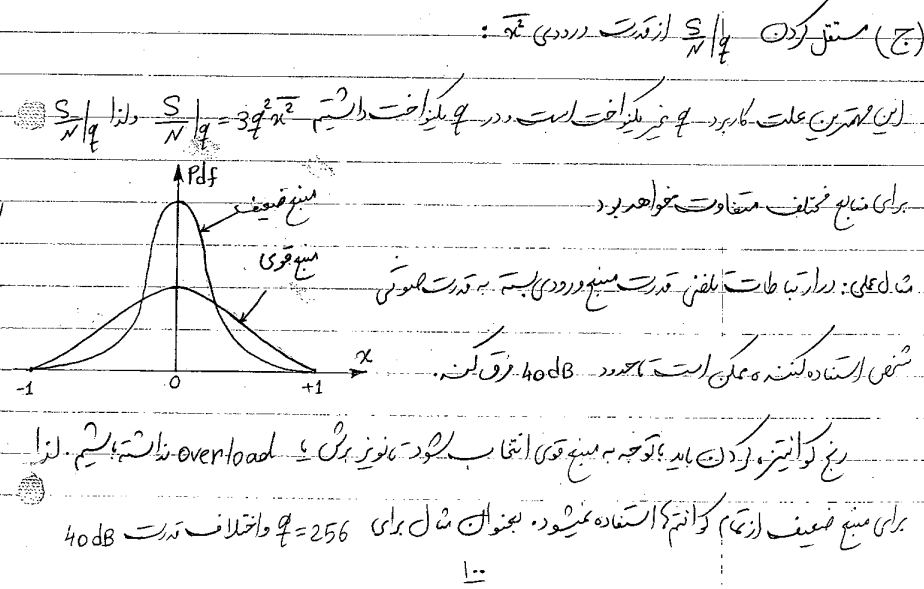 (ج) مستقل کردن S/N|q از قدرت ورودی x̄² :
این مهمترین علت کاربرد q غیر یکنواخت است و در q یکنواخت داشتیم S/N|q = 3q²x̄² ولذا S/N|q
برای منابع مختلف متفاوت خواهد بود
Pdf
منبع ضعیف
منبع قوی
x
-1 0 +1
مثال عملی: در ارتباطات تلفنی قدرت منبع ورودی بسته به قدرت صوتی
شخص استفاده کننده ممکن است تا حدود 40dB فرق کند.
رنج کوانتیزه کردن باید با توجه به منبع قوی انتخاب شود تا نویز برش یا overload نداشته باشیم. لذا
برای منبع ضعیف از تمام کوانتم‌ها استفاده نمیشود. بعنوان مثال برای q=256 و اختلاف قدرت 40dB
۱۰۰